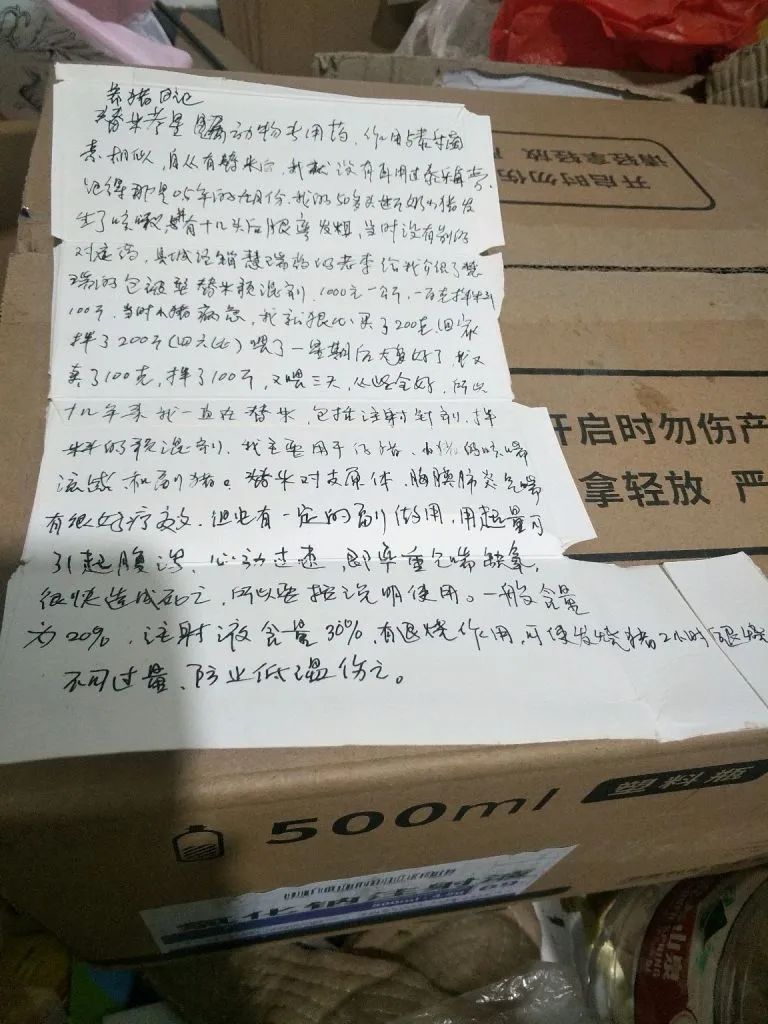 养猪日记
替米考星属动物专用药，作用与泰乐菌
素相似，自从有替米后，我就没有再用过泰乐菌素。
记得那是05年的九月份，我的50多头断奶小猪发
生了咳嗽，有十几头后腿弯发粗，当时没有别的
对症药，县城经销慧瑞药的老李给我介绍了慧
瑞的包被型替米预混剂，1000元一公斤，一百克拌料
100斤，当时小猪病急，我就狠心买了200克，回家
拌了200斤，喂了一星期后大多好了，我又
买了100克，拌了100斤，又喂三天，从此全好，所以
十几年来我一直在用替米，包括注射针剂，拌
料的预混剂，我主要用于仔猪、小猪的咳喘
流感和副猪。替米对支原体、胸膜肺炎气喘
有很好疗效，但也有一定的副作用，用超量可
引起腹泻，心动过速，即率重气喘缺氧，
很快造成死亡，所以要按说明使用。一般含量
为20%，注射液含量30%，有退烧作用，可使发烧猪2小时退烧
不可过量，防止低温伤亡。
开启时勿伤产
请轻拿轻放
开启时勿伤产
拿轻放 严
500ml 塑料瓶
氯化钠注射液